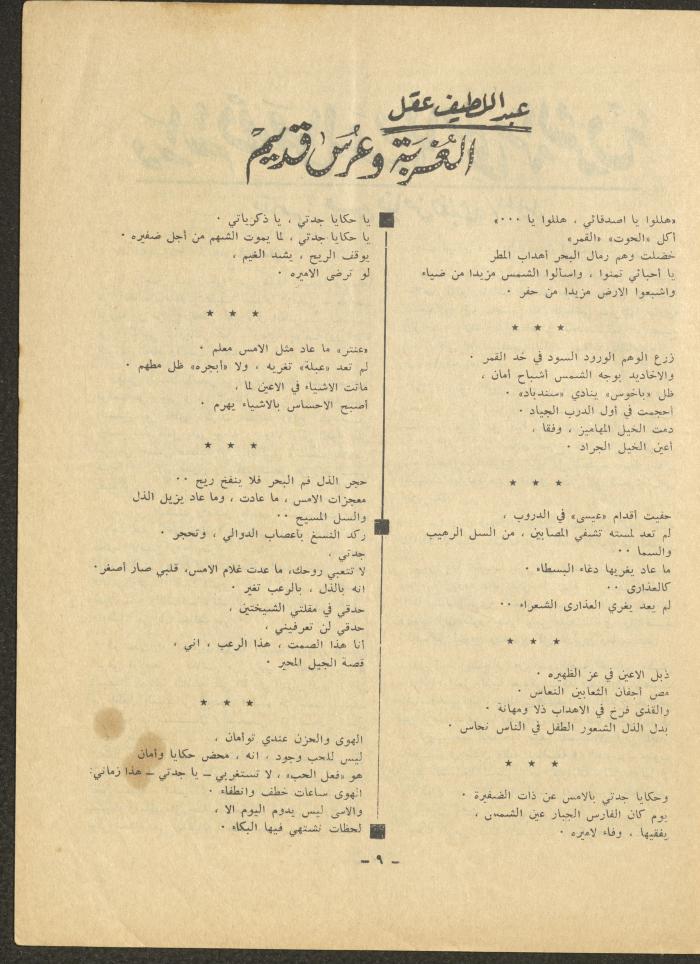 عبد اللطيف عقل
الغُربَة وعرُس قديم
«هللوا يا اصدقائي ، هللوا يا ٠٠٠»
أكل «الحوت» «القمر»
خضلت وهم رمال البحر أهداب المطر
يا أحبائي تمنوا ، واسألوا الشمس مزيدا من ضياء
واشبعوا الارض مزيدا من حفر ٠
★ ★ ★
زرع الوهم الورود السود في خد القمر ٠
والاخاديد بوجه الشمس أشباح أمان ،
ظل «باخوس» ينادي «سندباد» ٠
أحجمت في أول الدرب الجياد ٠
دمت الخيل المهاميز ، وفقا ،
أعين الخيل الجراد ٠
★ ★ ★
حفيت أقدام «عيسى» في الدروب ،
لم تعد لمسته تشفي المصابين ، من السل الرهيب
والسما ٠٠
ما عاد يغريها دعاء البسطاء ٠
كالعذارى ٠٠
لم يعد يغري العذارى الشعراء ٠٠
★ ★ ★
ذبل الاعين في عز الظهيره ٠
مص أجفان الثعابين النعاس ٠
والقذى فرخ في الاهداب ذلا ومهانة ٠
بدل الذل الشعور الطفل في الناس نحاس ٠
★ ★ ★
وحكايا جدتي بالامس عن ذات الضفيرة ٠
يوم كان الفارس الجبار عين الشمس ،
يفقيها ، وفاء لاميره ٠
يا حكايا جدتي ، يا ذكرياتي ٠
يا حكايا جدتي ، لما يموت الشهم من أجل ضفيره ٠
يوقف الريح ، يشد الغيم ،
لو ترضى الاميره ٠
★ ★ ★
«عنتر» ما عاد مثل الامس معلم ٠
لم تعد «عبلة» تغريه ، ولا «أبجره» ظل مطهم ٠
ماتت الاشياء في الاعين لما ،
أصبح الاحساس بالاشياء يهرم ٠
★ ★ ★
حجر الذل فم البحر فلا ينفخ ريح ٠٠
معجزات الامس ، ما عادت ، وما عاد يزيل الذل
والسل المسيح ٠٠
ركد النسغ بأعصاب الدوالي ، وتحجر ٠
جدتي ،
لا تتعبي روحك، ما عدت غلام الامس، قلبي صار أصفر٠
انه بالذل ، بالرعب تغير ٠
حدقي في مقلتي الشيختين ،
حدقي لن تعرفيني ،
أنا هذا الصمت ، هذا الرعب ، اني ،
قصة الجيل المحير ٠
★ ★ ★
الهوى والحزن عندي توأمان ،
ليس للحب وجود ، انه ، محض حكايا وأمان
هو «فعل الحب» ، لا تستغربي ــ يا جدتي ــ هذا زماني:
الهوى ساعات خطف وانطفاء ٠
والاسى ليس يدوم اليوم الا ،
لحظات نشتهي فيها البكاء ٠
- ٩ -